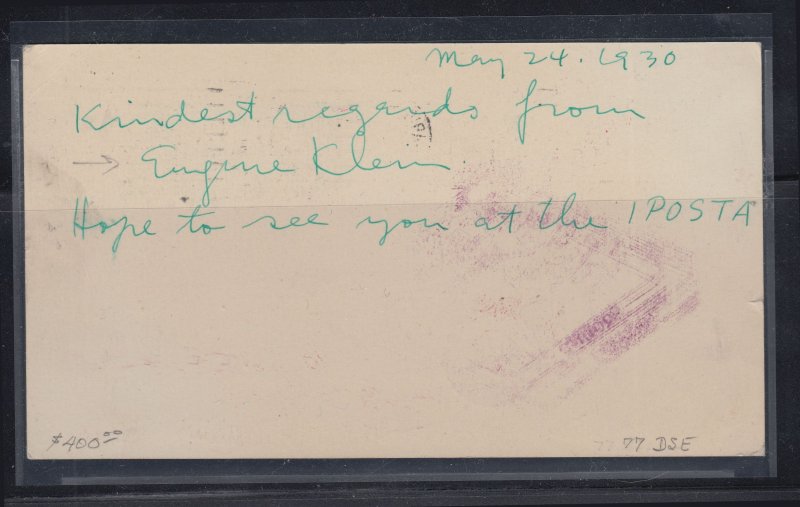 May 24. 1930
Kindest regards from
→ Eugene Klein.
Hope to see you at the IPOSTA
$400.00
77 DSE